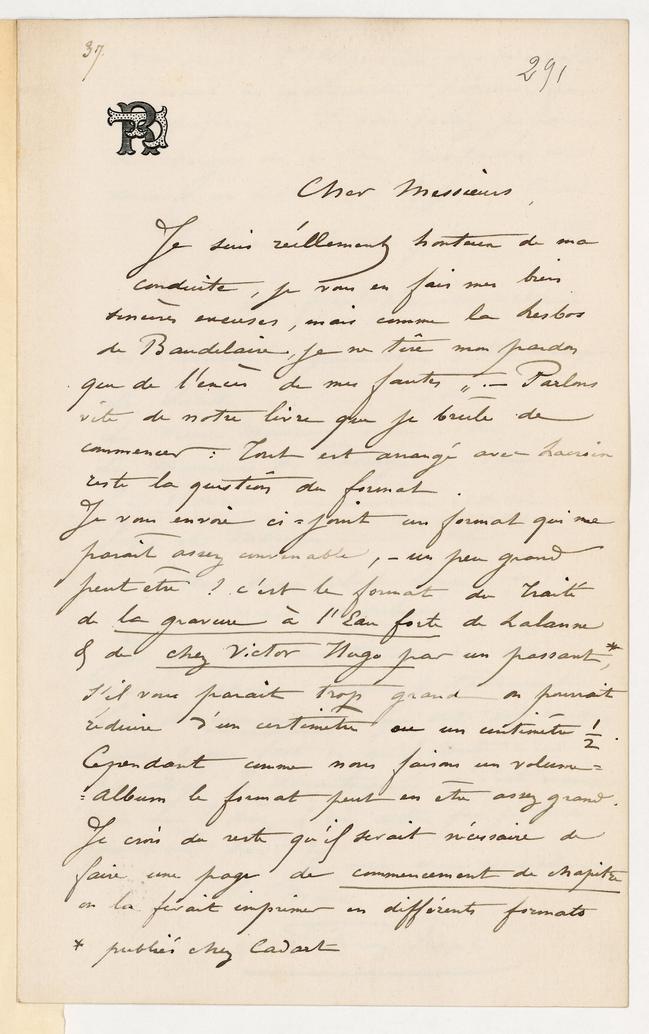 37
291
Cher Messieurs,
Je suis réellement honteux de ma
conduite, je vous en fais mes bien
sincères excuses, mais comme la Lesbos
de Baudelaire, je ne tire mon pardon
que de l'excès de mes fautes „ — Parlons
vite de notre livre que je brûle de
commencer : Tout est arrangé avec Lacroix
reste la question du format.
Je vous envoie ci=joint un format qui me
paraît assez convenable, – un peu grand
peut être ? c'est le format du Traité
de la gravure à l'Eau forte de Lalanne
& de chez Victor Hugo par un passant,*
s'il vous parait trop grand on pourrait
réduire d'un centimètre ou un centimètre 1/2.
Cependant comme nous faisons un volume=
=album le format peut en être assez grand.
Je crois du reste qu'il serait nécessaire de
faire une page de commencement de chapitre
on la ferait imprimer en différents formats
* publiés chez Cadart